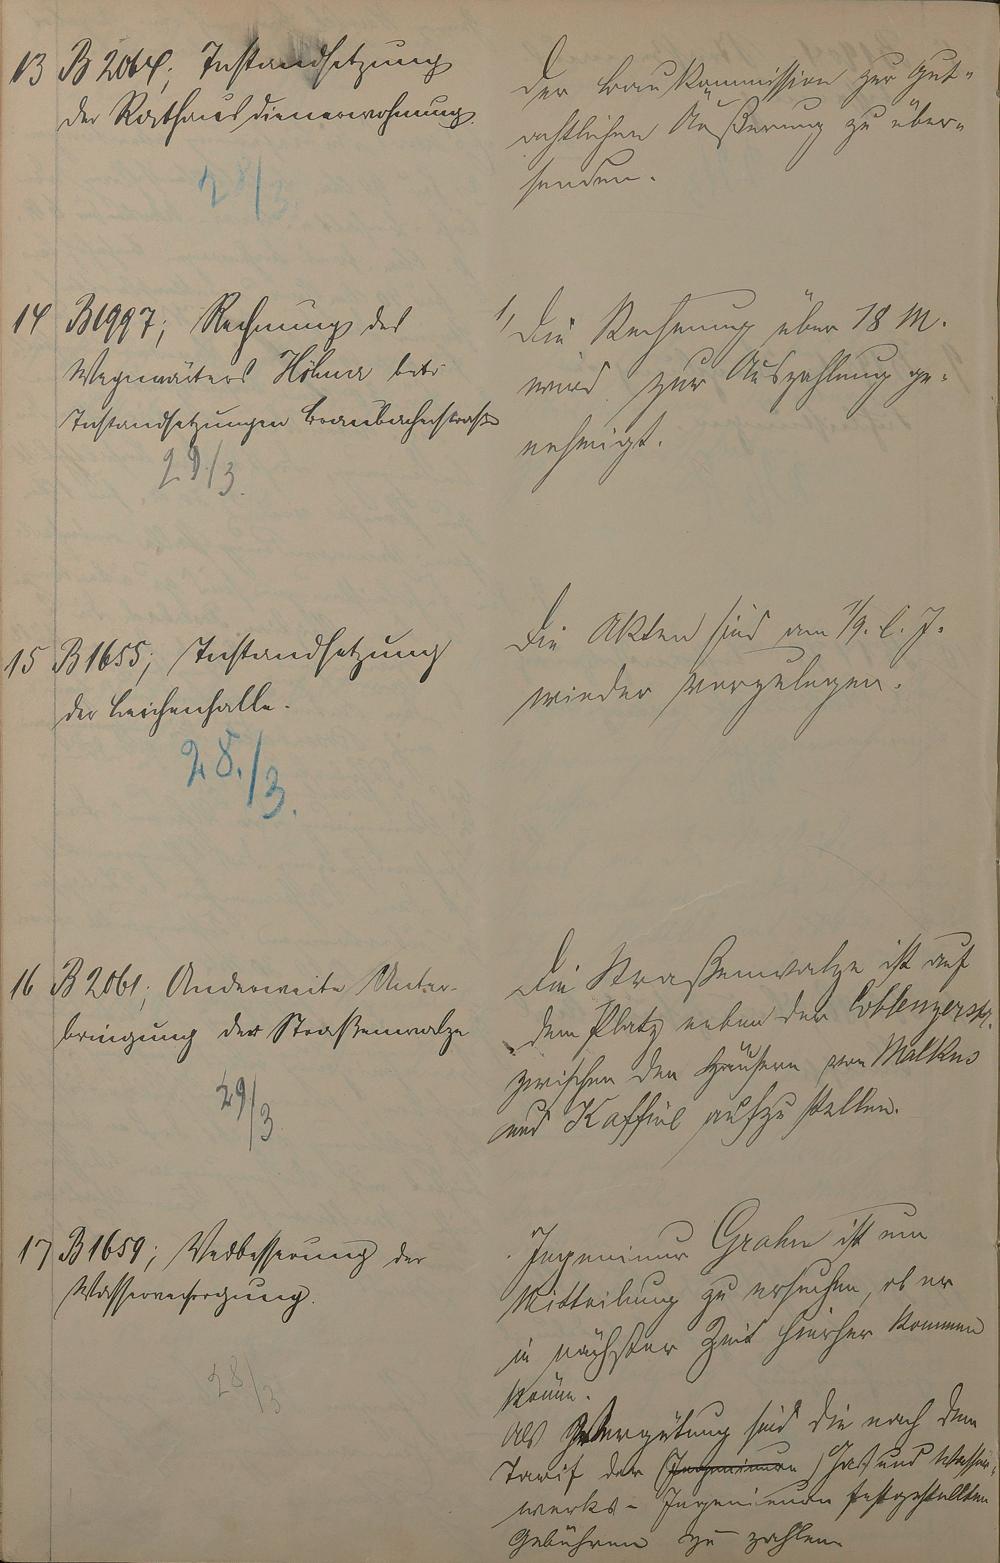 13 B 2064; Instandsetzung
der Rathausdienerwohnung.
28/3.
Der Baukommission zur gut-
achtlichen Äußerung zu über-
senden.
14 B 1997; Rechnung des
Wegewärters Höhner betr.
Instandsetzungen Braubacherstraße
29./3.
1, Die Rechnung über 78 M.
wird zur Auszahlung ge-
nehmigt.
15 B 1655; Instandsetzung
der Leichenhalle.
28./3.
Die Akten sind am 1/9. l. J.
wieder vorzulegen.
16 B 2061; Anderweite Unter-
bringung der Straßenwalze
29/3
Die Straßenwalze ist auf
dem Platz neben der Coblenzerstr.
zwischen den Häusern von Malkus
und aufzustellen.
17 B 1659; Verbesserung der
Wasserversorgung.
28/3
Ingenieur Grahn ist um
Mitteilung zu ersuchen, ob er
in nächster Zeit hierher kommen
könne.
Als Vergütung sind die nach dem
Tarif der (Ingenieure) Gas und Wasser-
werks-Ingenieure festgestellten
Gebühren zu zahlen